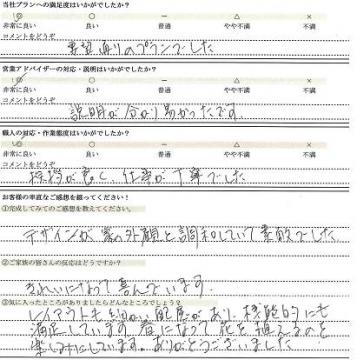 当社プランへの満足度はいかがでしたか?
◎ ○ − △ ×
非常に良い 良い 普通 やや不満 不満
コメントをどうぞ
要望通りのプランでした
営業アドバイザーの対応・説明はいかがでしたか?
◎ ○ − △ ×
非常に良い 良い 普通 やや不満 不満
コメントをどうぞ
説明が分かり易かったです。
職人の対応・作業態度はいかがでしたか?
◎ ○ − △ ×
非常に良い 良い 普通 やや不満 不満
コメントをどうぞ
挨拶が良く、仕事が丁寧でした
お客様の率直なご感想を綴ってください!
①完成してみてのご感想を教えてください。
デザインが家の外観と調和していて素敵でした
②ご家族の皆さんの反応はどうですか?
きれいになって喜んでいます。
③気に入ったところがありましたらどんなところでしょう?
レイアウトも細かい配慮があり、機能的にも
満足しています。春になって花を植えるのを
楽しみにしています。ありがとうございました